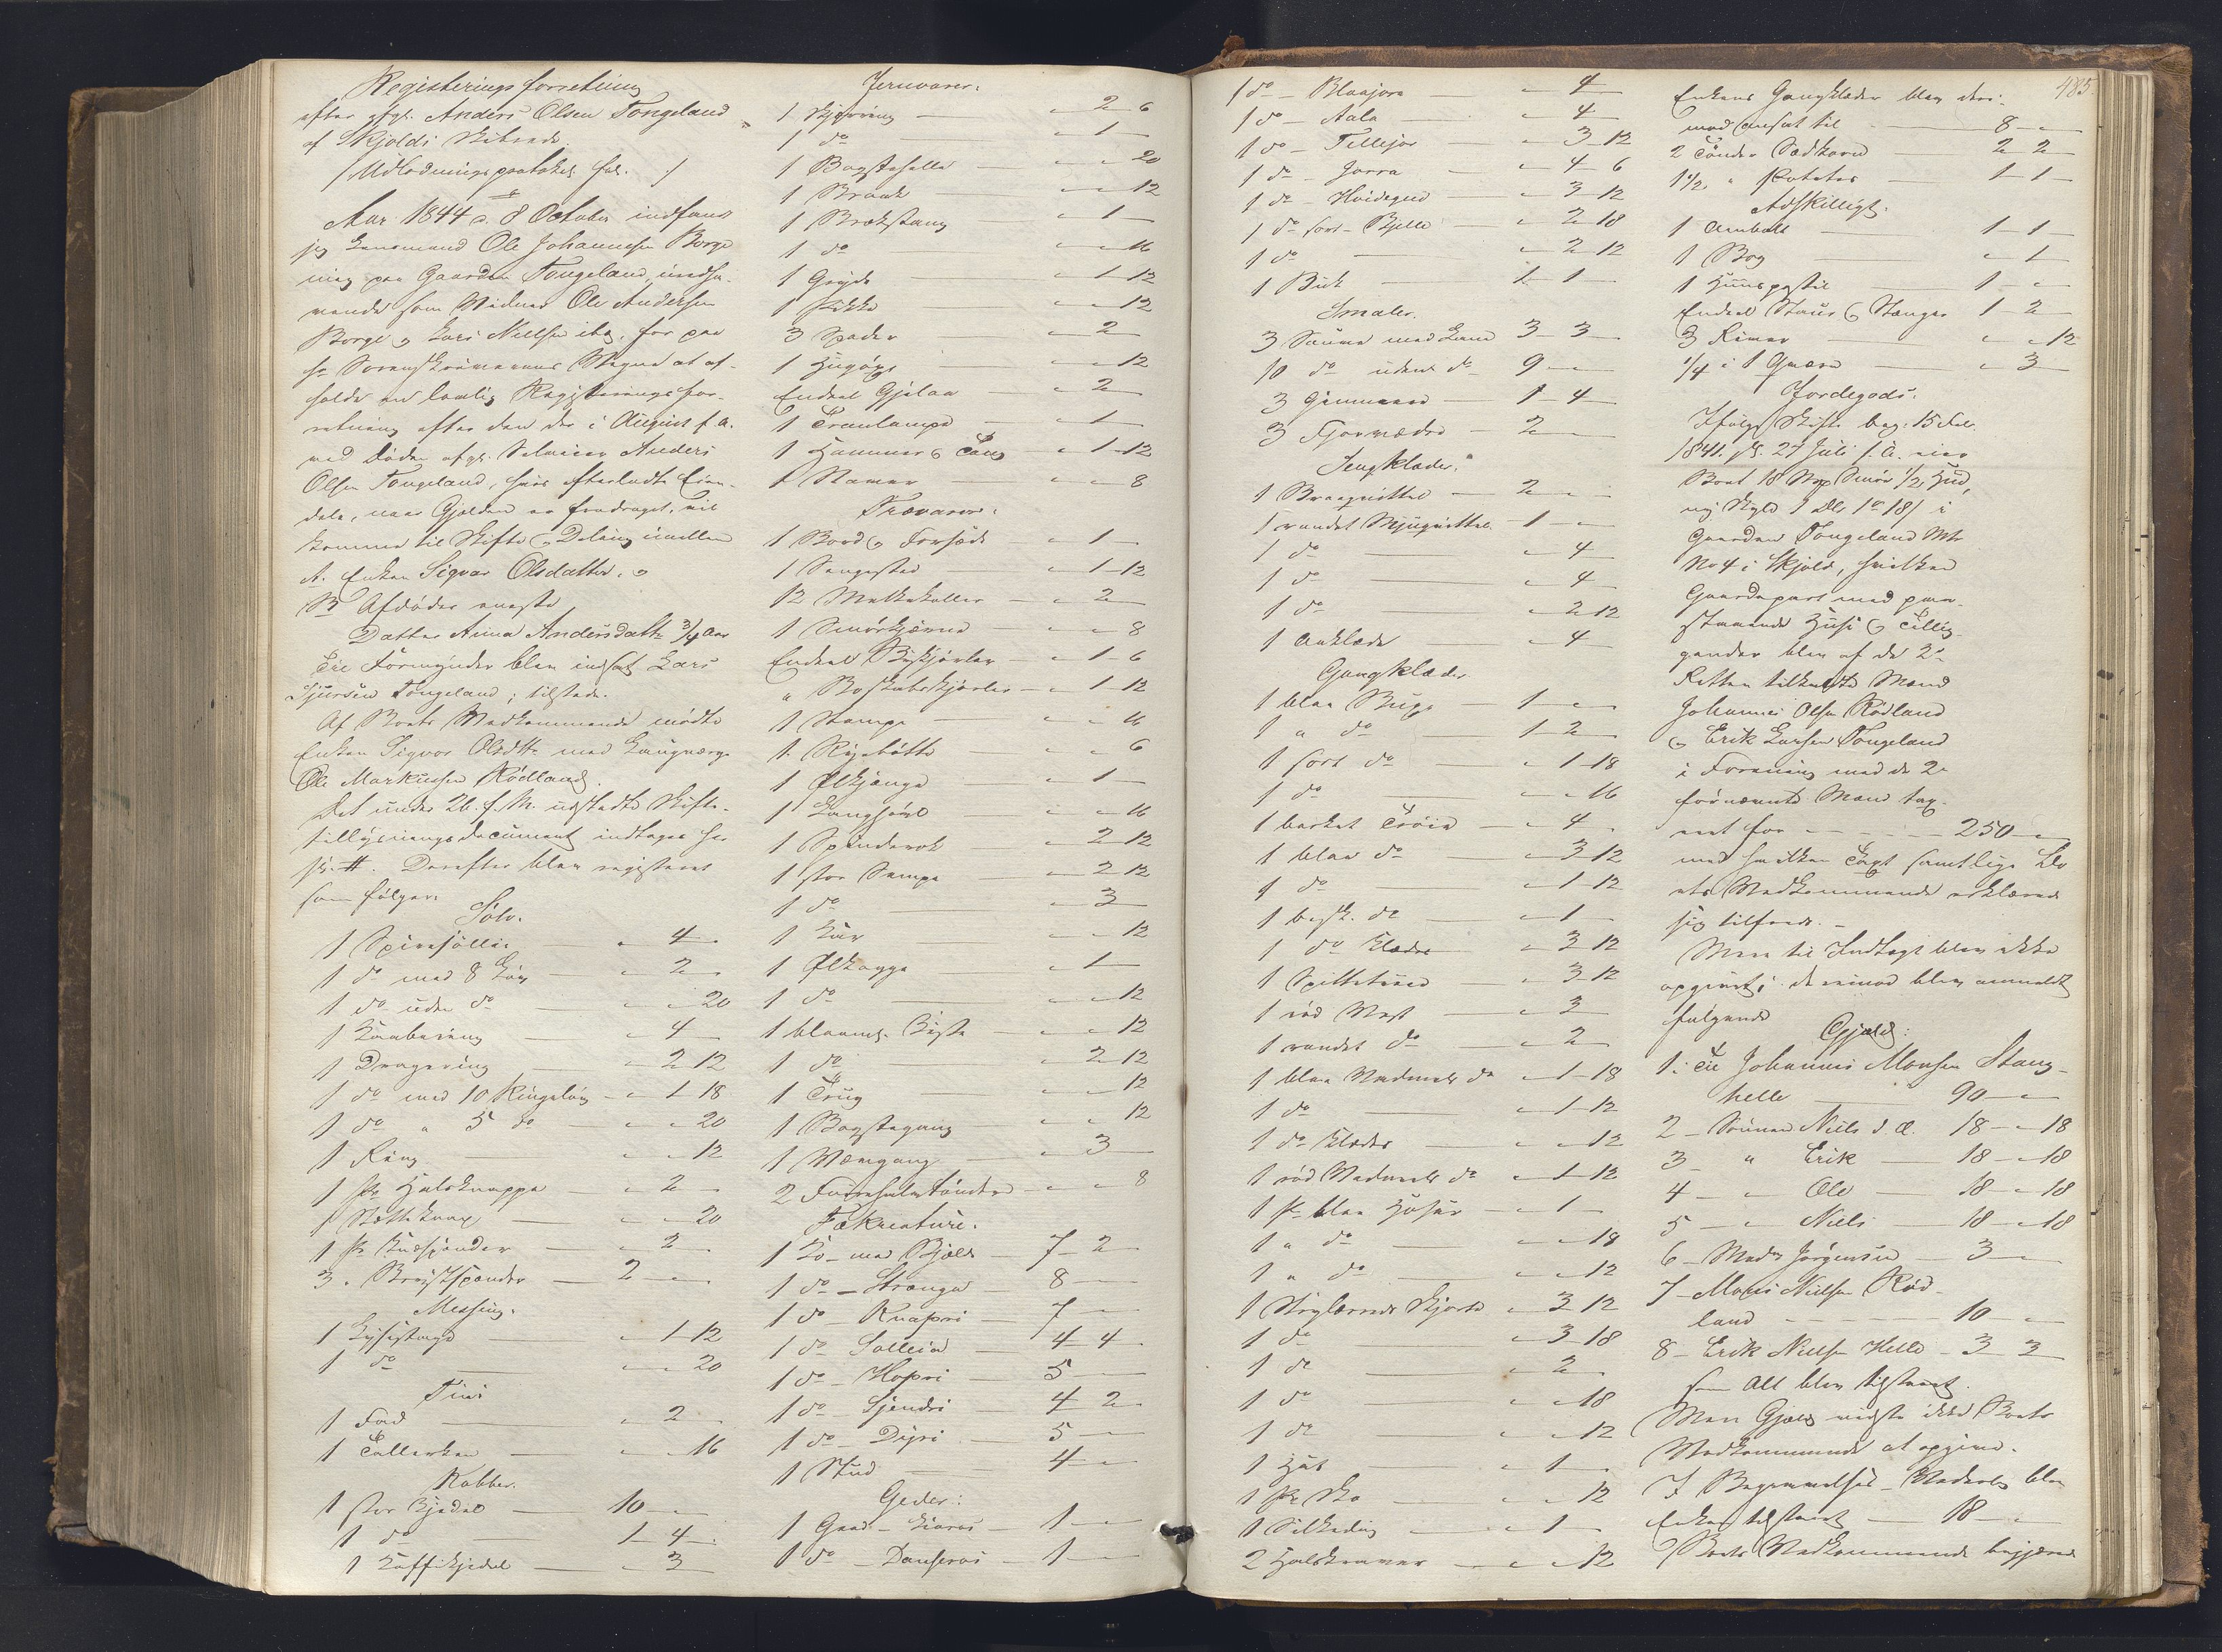 Registeringsforretning
efter afg. Anders Olsen Tongeland
af Skjolds Skibrede
/Udlodningsprotokol fol. /
Aar 1844 d. 8 October indfant
jeg Lensmand Ole Johannesen Borge
mig paa Gaarden Tongeland, medha-
vende som Vidner Ole Andersen
Borge og Lars Nielsen ibd, for paa
Hr Sorenskriverens Vegne at af-
holde en lovlig Registeringsfor-
retning efter den der i August f. A.
ved Døden afg. Selveier Anders
Olsen Tongeland, hvis efterladte Eien-
dele, naar Gjælden er fradraget, vil
komme til Skifte og Deling imellem
A. Enken Sigvor Olsdatter, og
B Afdødes eneste
Datter Anna Andersdatter 3/4 Aar
Til Formynder blev indsat Lars
Sjursen Tongeland; tilstede.
Af Boets Vedkommende mødte
Enken Sigvor Olsdtr med Laugværge
Ole Markussen Rødland.
Det under 26. f. M. udstedte Skifte-
tillysningsdocument indtages her
sk. #. Derefter blev registeret
som følger:
Sølv.
1 Spiresøllie - 4 -
1 do med 8 Løv - 2 -
1 do uden do - - 20
1 Kaabering - 4 -
1 Dragering - 2 12
1 do med 10 Ringeløv - 1 18
1 do " 5 do - - 20
1 Ring - - 12
1 Pr Halsknappe - 2 -
1 Stetteknap - - 20
1 Pr Knæspænder - 2 -
3 " Brystspænder 2 - -
Messing.
1 Lysestage - 1 12
1 do - - 20
Tin
1 Fad - 2 -
1 Tallerken - - 16
Kobber.
1 stor Kjedel 10 - -
1 do 1 4 -
1 Kaffekjedel - 3 -
Jernvarer.
1 Skjæring - 2 6
1 do - 1 -
1 Bagstehelle - - 20
1 Brand - - 12
1 Brækstang - 1 -
1 do - - 16
1 Gryde - 1 12
1 Hakke - - 12
3 Spader - 2 -
1 Hugøxe - - 12
Endeel Gjelar - 2 -
1 Tranlampe - 1 -
1 Hammer og Tang - 1 12
1 Naver - - 8
Trævarer.
1 Bord og Forsæde - 1 -
1 Sengested - 1 12
12 Melkekoller - 2 -
1 Smørkjærne - - 8
Endeel Byskjørler - 1 6
" Boskabskjørler - 1 12
1 Stampe - - 16
1 Rygebøtte - - 6
1 Ølkjenge - 1 -
1 Langhøvl - - 16
1 Spinderok - 2 12
1 stor Sempe - 2 12
1 do - 3 -
1 Kar - - 12
1 Ølkagge - 1 -
1 do - - 12
1 blaamt. Kiste - - 12
1 do - 2 12
1 Trug - - 12
1 Bagstegang - - 12
1 Vævgang - 3 -
2 Foreholmtønder - - 8
Fækreature.
1 Ko - med Bjælde 7 2 -
1 do - Strenga 8 - -
1 do - Knapri 7 - -
1 do - Salleia 4 4 -
1 do - Hopri 5 - -
1 do - Sjendri 4 2 -
1 do - Dyri 5 - -
1 Stud 4 - -
Geder.
1 Geed - Liaros 1 - -
1 do - Danseros 1 - -
485
1 do - Blaajora - 4 -
1 do - Aala - 4 -
1 do - Tillejor - 3 12
1 do - Jorra - 4 6
1 do - Hvidegeed - 3 12
1 do sort - Bjelle - 2 18
1 do - 2 12
1 Buk 1 1 -
Smaler.
3 Sauer med Lam 3 3 -
10 do uden do 9 - -
3 Gimmerer 1 4 -
3 Fjorvædre 2 - -
Sengklæder.
1 Braaquittel 2 - -
1 randet Mjugquittel 1 - -
1 do - 4 -
1 do - 4 -
1 do - 2 12
1 Aaklæde - 4 -
Gangklæder.
1 blaa Buxe 1 - -
1 " do 1 2 -
1 sort do - 1 18
1 do - - 16
1 barket Trøie - 4 -
1 blaa do - 3 12
1 do - 1 12
1 besk. do - 1 -
1 do Klædes - 3 12
1 Spittetrøie - 3 12
1 rød Vest - 3 -
1 randet do - 2 -
1 blaa Vadmels do - 1 18
1 do - 1 12
1 do Klædes - - 12
1 rød Vadmels do - 1 12
1 Pr blaa Hoser - 1 -
1 " do - - 18
1 " do - - 12
1 Striglerreds Skjorte - 3 12
1 do - 3 18
1 do - 2 -
1 do - - 18
1 do - - 12
1 Hat - 1 -
1 Pr Sko - - 12
1 Silkedug - 1 -
2 Halskraver - - 12
Enkens Gangklæder blev deri-
mod ansat til 8 - -
2 Tønder Sædkorn 2 2 -
1 1/2 " Poteter 1 1 -
Adskilligt.
1 Ambolt 1 1 -
1 Bog - 1 -
1 Huuspostil 1 - -
Endeel Staur og Stanger 1 2 -
3 River - - 12
1/4 i 1 Qværn - 3 -
Jordegods.
Ifølge Skifte beg. 15 Febr.
1841. sl. 27 Juli s. A. eier
Boet 18 Mrk Smør 1/2 Hud,
ny Skyld 1 Dlr 1 o 18 s i
Gaarden Tongeland Mtr
No 4 i Skjold, hvilken
Gaardepart med paa-
staaende Huse og Tillig-
gender blev af de 2de
Retten tilkaldte Mænd
Johannes Olsen Rødland
og Erik Larsen Tongeland
i Forening med de 2de
førnævnte Mænd tax-
eret for 250 - -
med hvilken Taxt samtlige Bo-
ets Vedkommende erklærede
sig tilfreds. -
Mere til Indtægt blev ikke
opgivet; derimod blev anmeldt
følgende
Gjæld:
1. Til Johannes Monsen Stang-
helle 90 - -
2 - Sønnen Niels d. Æ. 18 - 18
3 - " Erik 18 - 18
4 - " Ole 18 - 18
5 - " Niels 18 - 18
6 - Mads Jørgensen 3 - -
7 - Mons Nielsen Rød-
land 10 - -
8 - Erik Nielsen Helle 3 3 -
som Alt blev tilstaaet.
Mere Gjæld vidste ikke Boets
Vedkommende at opgive.
I Begravelses-Vederlag blev
Enken tilstaaet 18 - -
Boets Vedkommende begjærede